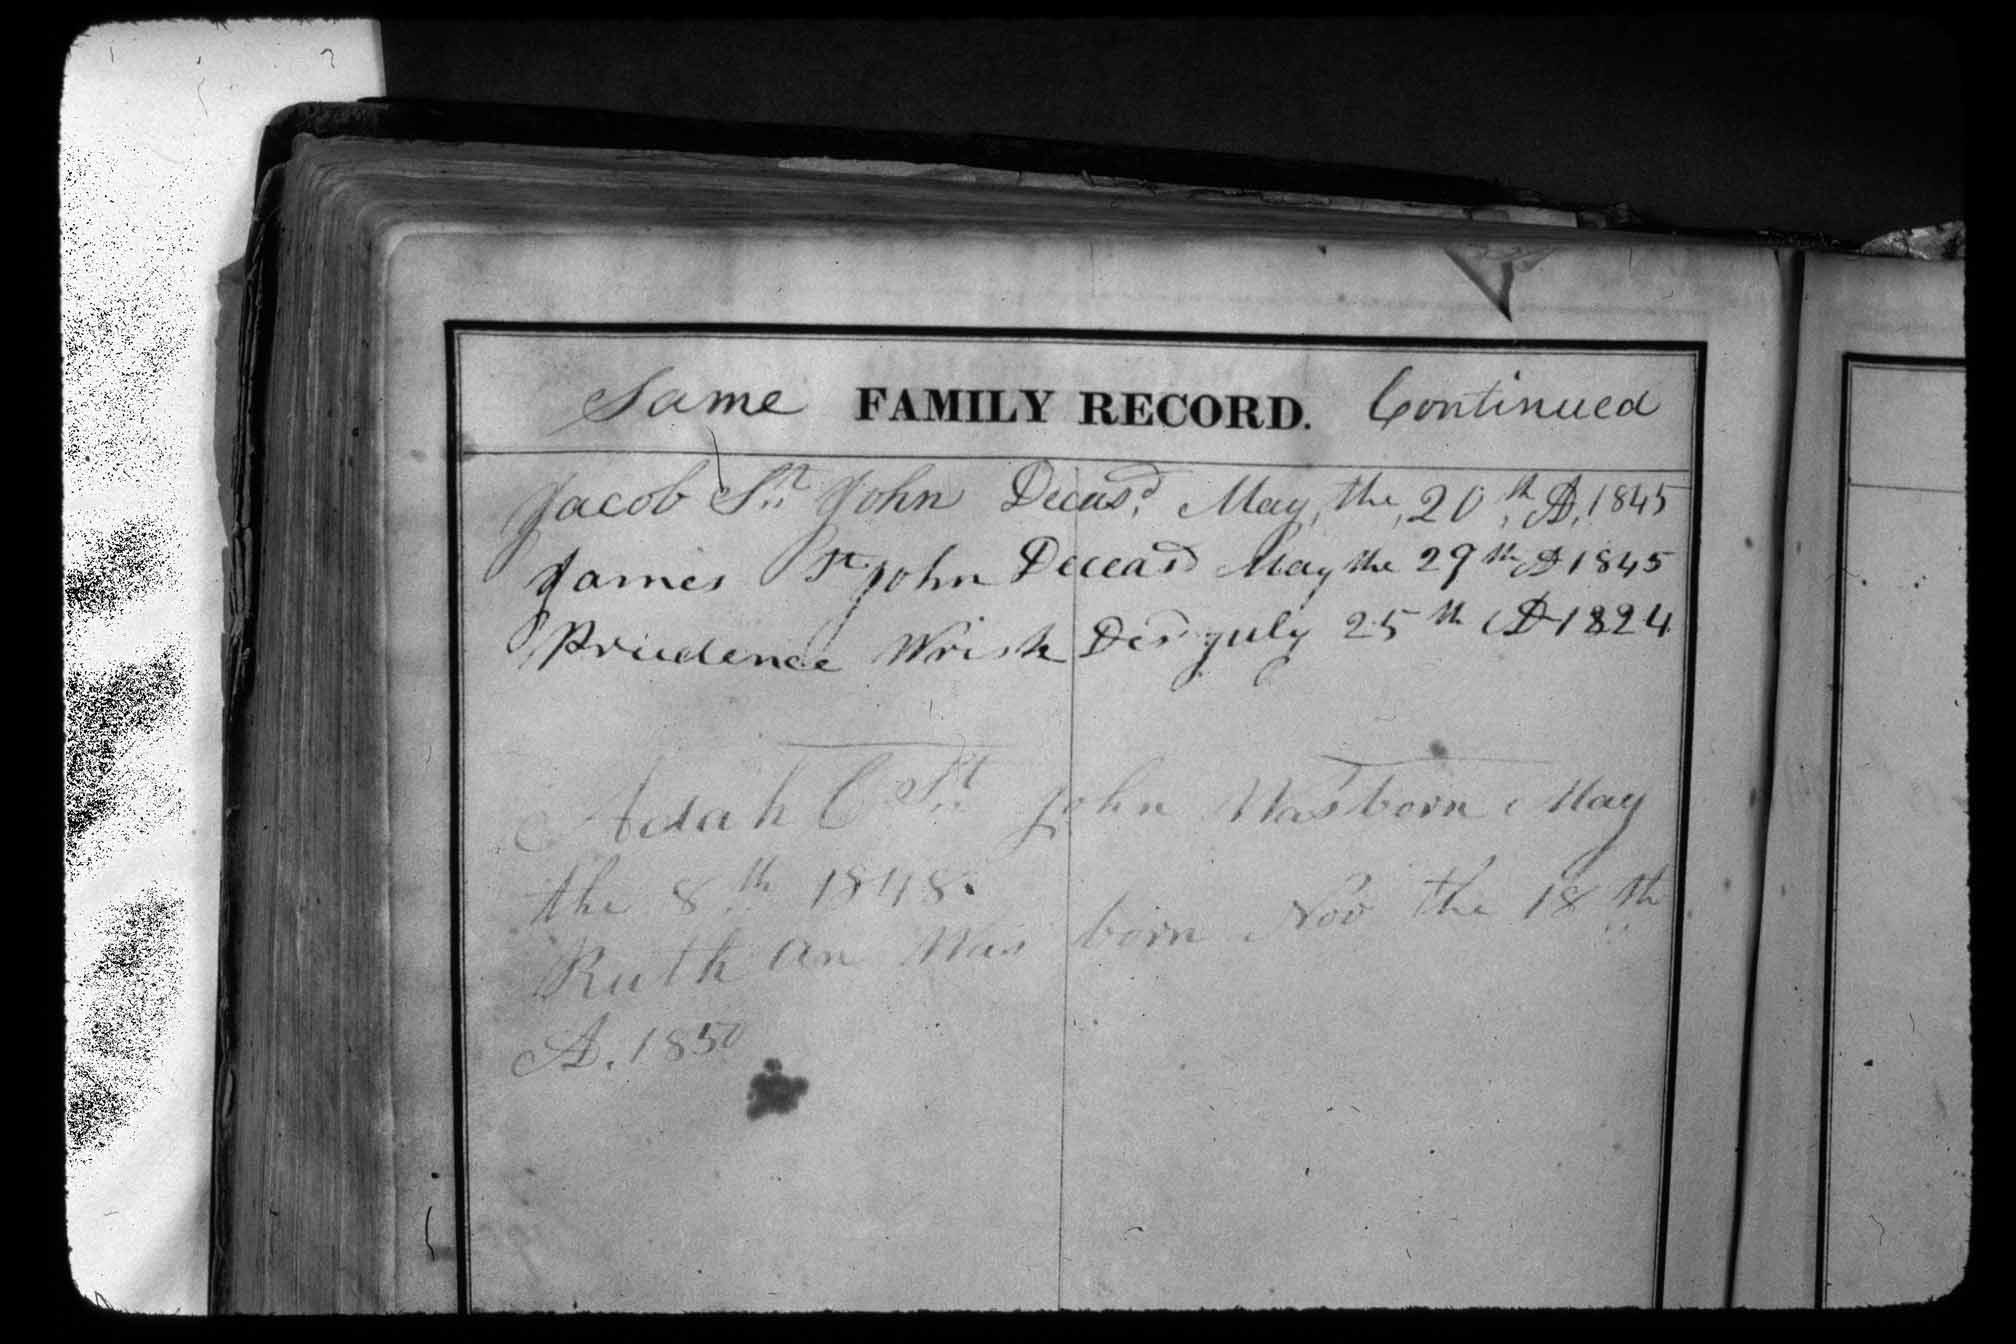 Same FAMILY RECORD. Continued
Jacob St. John Deceasd. May, the, 20th AD, 1845
James St John Deceasd May the 29th AD 1845
Prudence Wrisk Des July 25th AD 1824
Adah C St. John Was born May
the 8th 1848.
Ruth An Was born Nov the 18th
AD. 1850